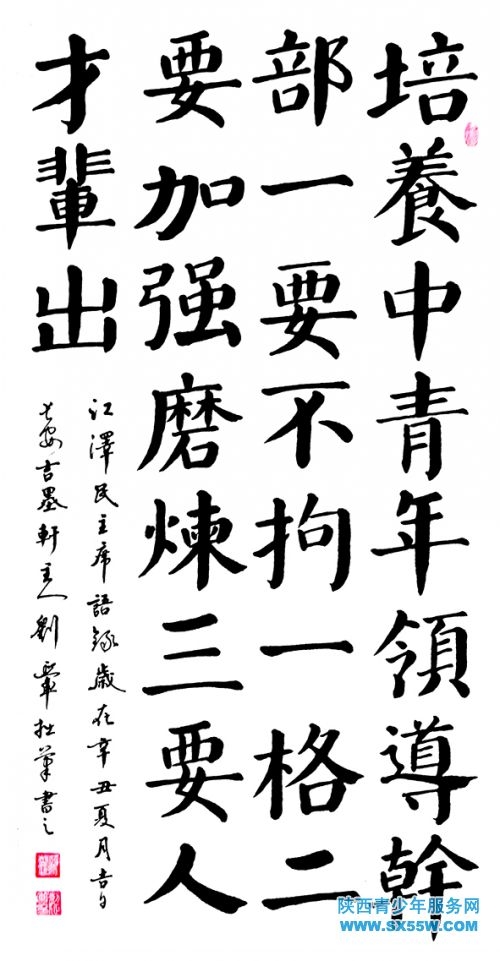 培養中青年領導幹
部一要不拘一格二
要加强磨煉三要人
才輩出
江澤民主席語録歲在辛丑夏月吉日
長安吉墨軒主人劉軍拙筆書之
陕西青少年服务网
www.sx55w.com